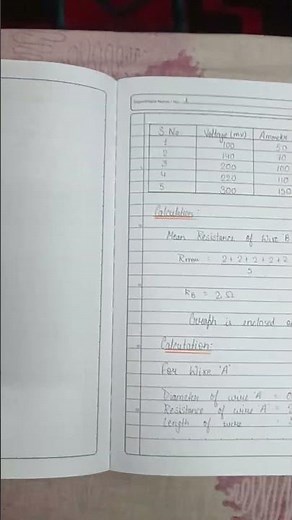 S.No Voltage (mv) Ammete
1 100 50
2 140 70
3 200 100
4 220 110
5 300 150
Calculation:
Mean Resistance of Wire B
= 2+2+2+2+2
5
RB = 2 Ω
Graph is enclosed
Calculation:
For Wire 'A'
Diameter of wire A = 0
Resistance of wire A =
Length of wire